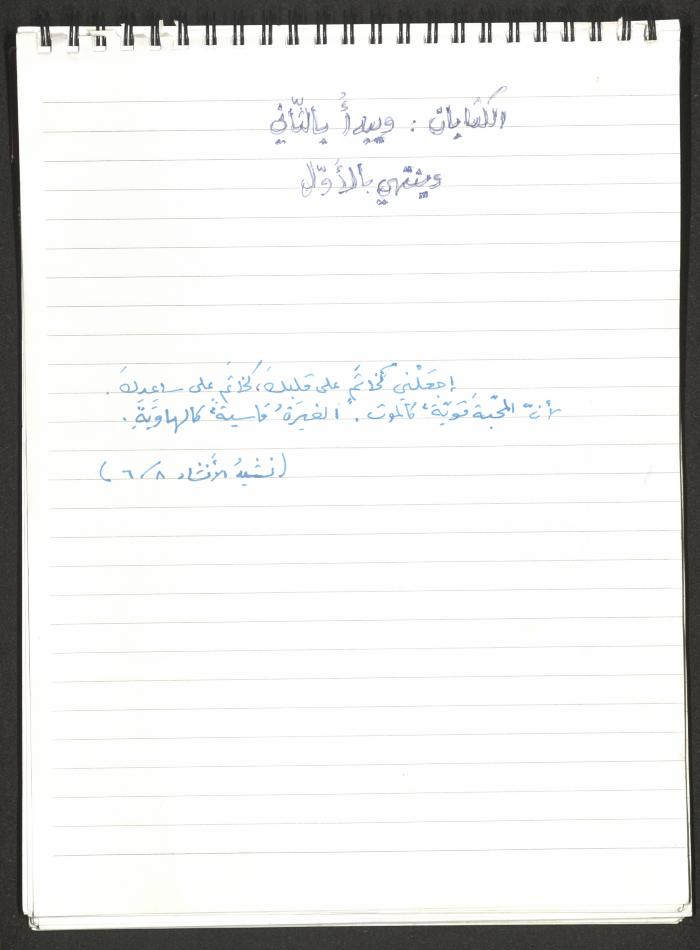 الكتابان : ويبدأ بالثّاني
وينتهي بالأوّل
إجعَلْني كخاتَمٍ على قلبِكَ، كخاتَمٍ على ساعِدِكَ.
لأنّ المحبّةَ قويّةٌ كالموت. الغَيرَةُ قاسيةٌ كالهاوِيَةِ.
(نشيدُ الأنشاد ٨/٦)